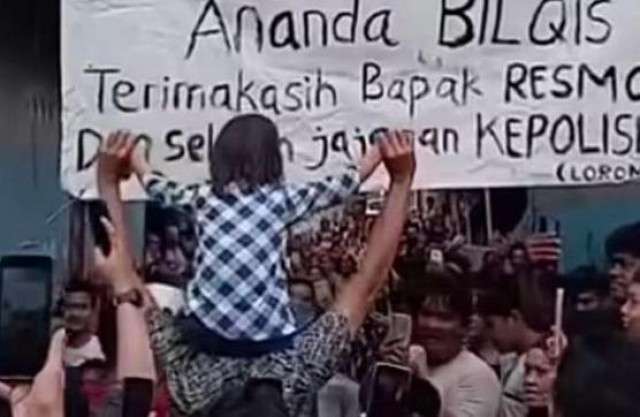 Ananda BILQIS
Terimakasih Bapak RESMO
Dan jajaran KEPOLISI
(LOROM